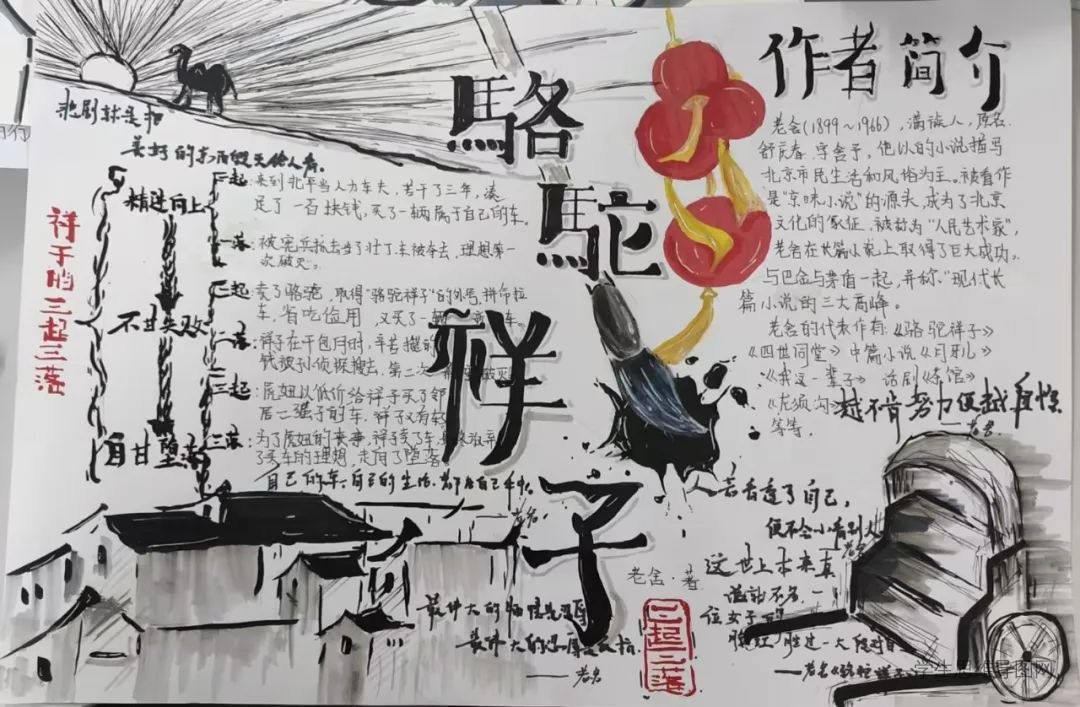 悲剧就是把
美好的东西毁灭给人看。
祥子的三起三落
精进向上
不甘失败
自甘堕落
一起:来到北平当人力车夫,苦干了三年,凑
足了一百块钱,买了一辆属于自己的车。
一落:被宪兵抓去当了壮丁,车被夺去,理想第一
次破灭。
二起:卖了骆驼,取得"骆驼祥子"的外号,拼命拉
车,省吃俭用,又买了一 车。
二落:祥子在干包月时,辛苦 的
钱被孙侦探搜去,第二次 破灭
三起:虎妞以低价给祥子买了邻
居二强子的车,祥子又有
三落:为了虎妞的丧事,祥子卖了车,
了买车的理想,走向了堕落
自己的车,自己的生活,都在自己手里。
——老舍
骆驼祥子
老舍·著
三起三落
作者简介
老舍(1899~1966),满族人,原名
舒庆春,字舍予,他以的小说描写
北京市民生活和风俗为主。被看作
是"京味小说"的源头,成为了北京
文化的象征,被称为"人民艺术家",
老舍在长篇小说上取得了巨大成功。
与巴金与茅盾一起,并称"现代长
篇小说的三大高峰。
老舍的代表作有:《骆驼祥子》
《四世同堂》中篇小说《月牙儿》
《我这一辈子》 话剧《茶馆》
《龙须沟》
等等。
越不肯努力便越自怜。
——老舍
人若看透了自己,
便不会小看别人
老舍
这世上本来真
话不多,一
位女子的
脸红,胜过一大段对白
——老舍《骆驼祥子》
最伟大的
最伟大的
——老舍
学生思维导图网